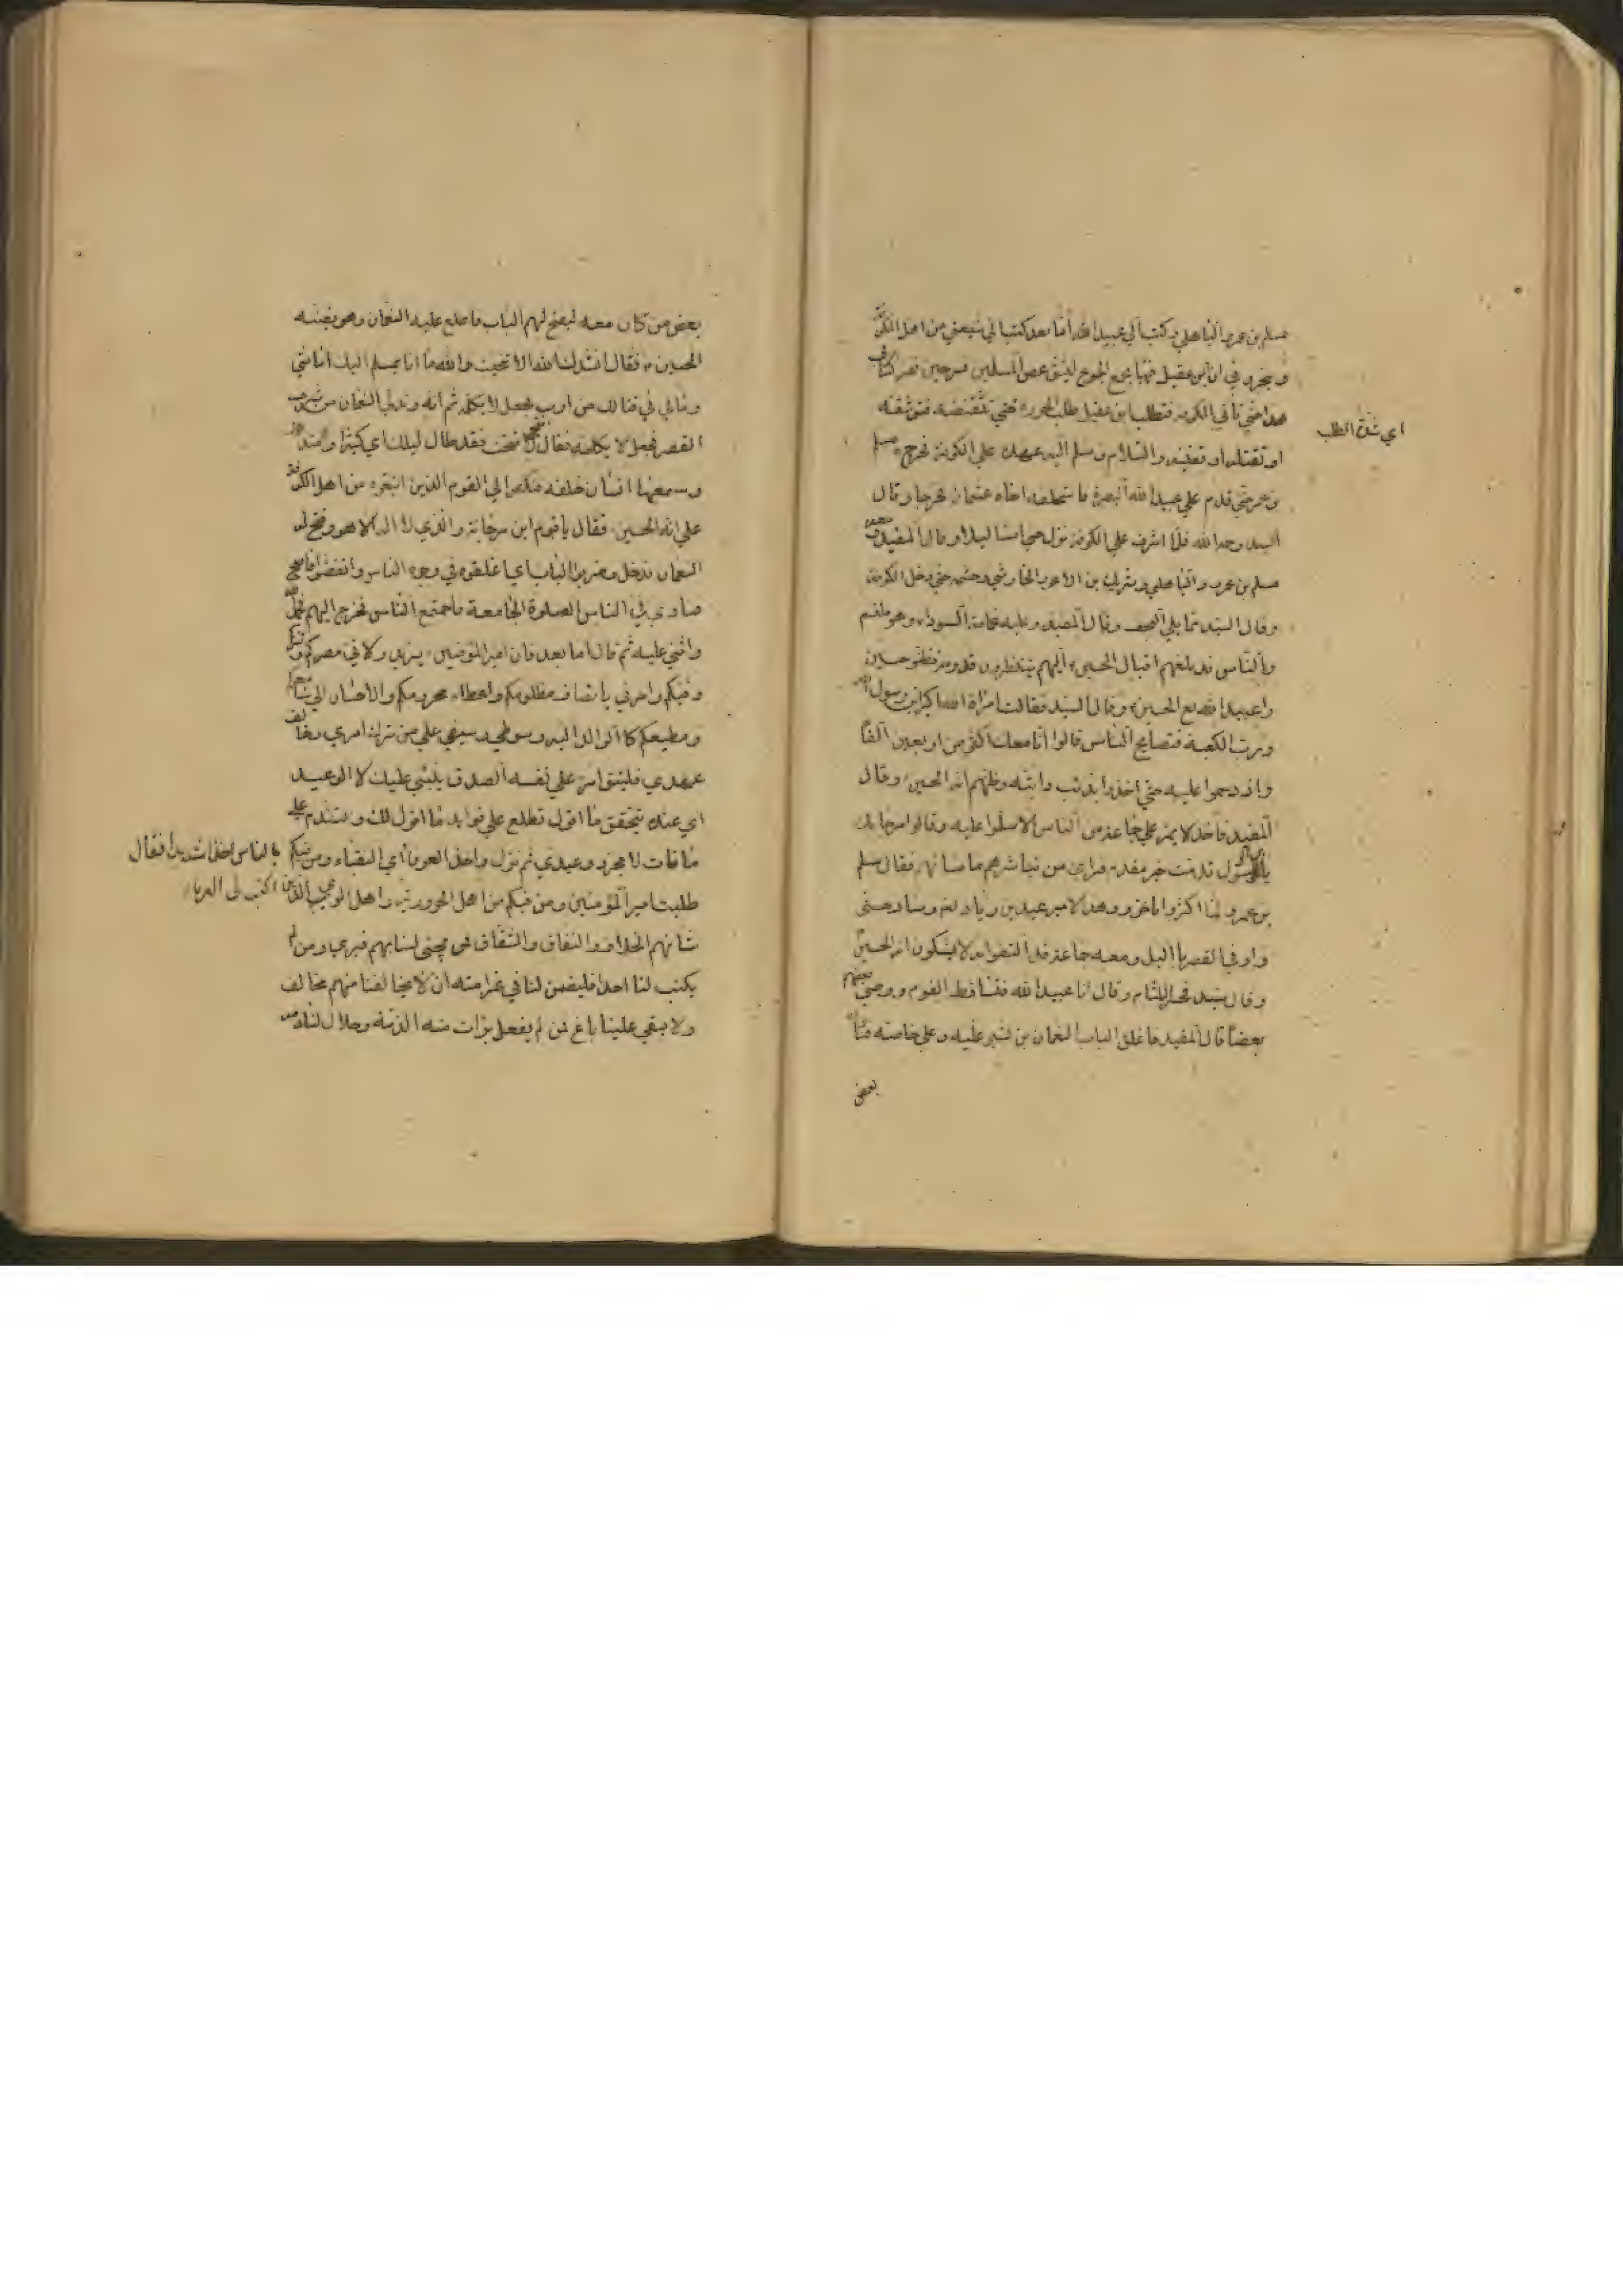 مسلم بن عمرو الباهلي وكتب الي عبيدالله اما بعد كتب الي شيعتي من اهل الكوفة
و يخبروني ان ابن عقيل فيها يجمع الجموع ليشق عصى المسلمين فسر حين تقرء كتابي
هذا حتى تأتي الكوفة فتطلب ابن عقيل طلب الخرزة حتى تثقفه فتوثقه
اي شدة الطلب
او تقتله او تنفيه والسلام وسلم اليه عهده على الكوفة فخرج مسلم
بن عمر حتى قدم على عبيد الله البصرة فاستخلف اخاه عثمان فخرجا وقال
السيد وحمد الله فلما اشرف على الكوفة نزل حتى امسا ليلا وقال المفيد ومعه
مسلم بن عمرو الباهلي وشريك بن الاعور الحارثي وحشمه حتى دخل الكوفة
وقال السيد مما يلي النجف وقال المفيد وعليه عمامة السوداء وهو ملثم
والناس قد بلغهم اقبال الحسين اليهم ينتظرون قدومه فظنوا حين
راو عبيدالله انه الحسين وقال السيد فقالت امرأة الله اكبر ابن رسول الله
ورب الكعبة فتصايح الناس قالوا انا معك اكثر من اربعين الفا
وازدحموا عليه حتى اخذوا بذنب دابته وظنهم انه الحسين وقال
المفيد فاخذ لا يمر على جماعة من الناس الا سلموا عليه وقالوا مرحبا بك
يابن الرسول قدمت خير مقدم فراى من تباشرهم ما سائه فقال مسلم
بن عمرو لما اكثروا تاخروا هذا الامير عبيد بن زياد وسار حتى
وافى القصر بالليل ومعه جماعة قد التفوا به لا يشكون انه الحسين
وقال السيد فحسر اللثام وقال انا عبيد الله فتساقط القوم ووطئ بعضهم
بعضا قال المفيد فاغلق الباب النعمان بن بشير عليه وعلى خاصته فناداه
بعض
بعض من كان معه ليفتح لهم الباب فاطلع عليه النعمان وهو يظنه
الحسين فقال انشدك الله الا تنحيت والله ما انا بمسلم اليك امانتي
ومالي في قتالك من ارب فجعل لا يكلمه ثم انه دنا وتدلى النعمان من شرف
القصر فجعل لا يكلمه فقال افتح لا فتحت فقد طال ليلك اي كثيرا وامتد
وسمعها انسان خلفه فنكص الي القوم الذين اتبعوه من اهل الكوفة
على انه الحسين فقال يا قوم ابن مرجانة والذي لا اله الا هو وفتح له
النعمان فدخل وضرب الباب اي اغلقوه في وجوه الناس وانفضوا فاصبح
منادى في الناس الصلوة الجامعة فاجتمع الناس فخرج اليهم فحمد الله
واثنى عليه ثم قال اما بعد فان امير المؤمنين يزيد ولاني مصركم وثغركم
وفيئكم وامرني بانصاف مظلومكم واعطاء محرومكم والاحسان الي سامعكم
ومطيعكم كالوالد البر وسوطي وسيفي على من ترك امري وخالف
عهدي فليتق امرء على نفسه الصدق ينبئ عليك لا الوعيد
اي عنده تتحقق ما اقول تطلع على فوايد ما اقول لك وتتندم على
ما فات لا مجرد وعيدي ثم نزل واخذ العرفاء اي النقباء ومن فيكم
بالناس اخذا شديدا فقال
طلبت امير المؤمنين ومن فيكم من اهل الحرورية واهل الريب الذين
اكتبوا لي العرفاء
شانهم الخلاف والنفاق والشقاق فمن يجئ لنا بهم فبرئ ومن لم
يكتب لنا احدا فليضمن لنا في عرافته ان لا يخالفنا منهم مخالف
ولا يبغي علينا باغ فمن لم يفعل برئت منه الذمة وحلال لنا دمه